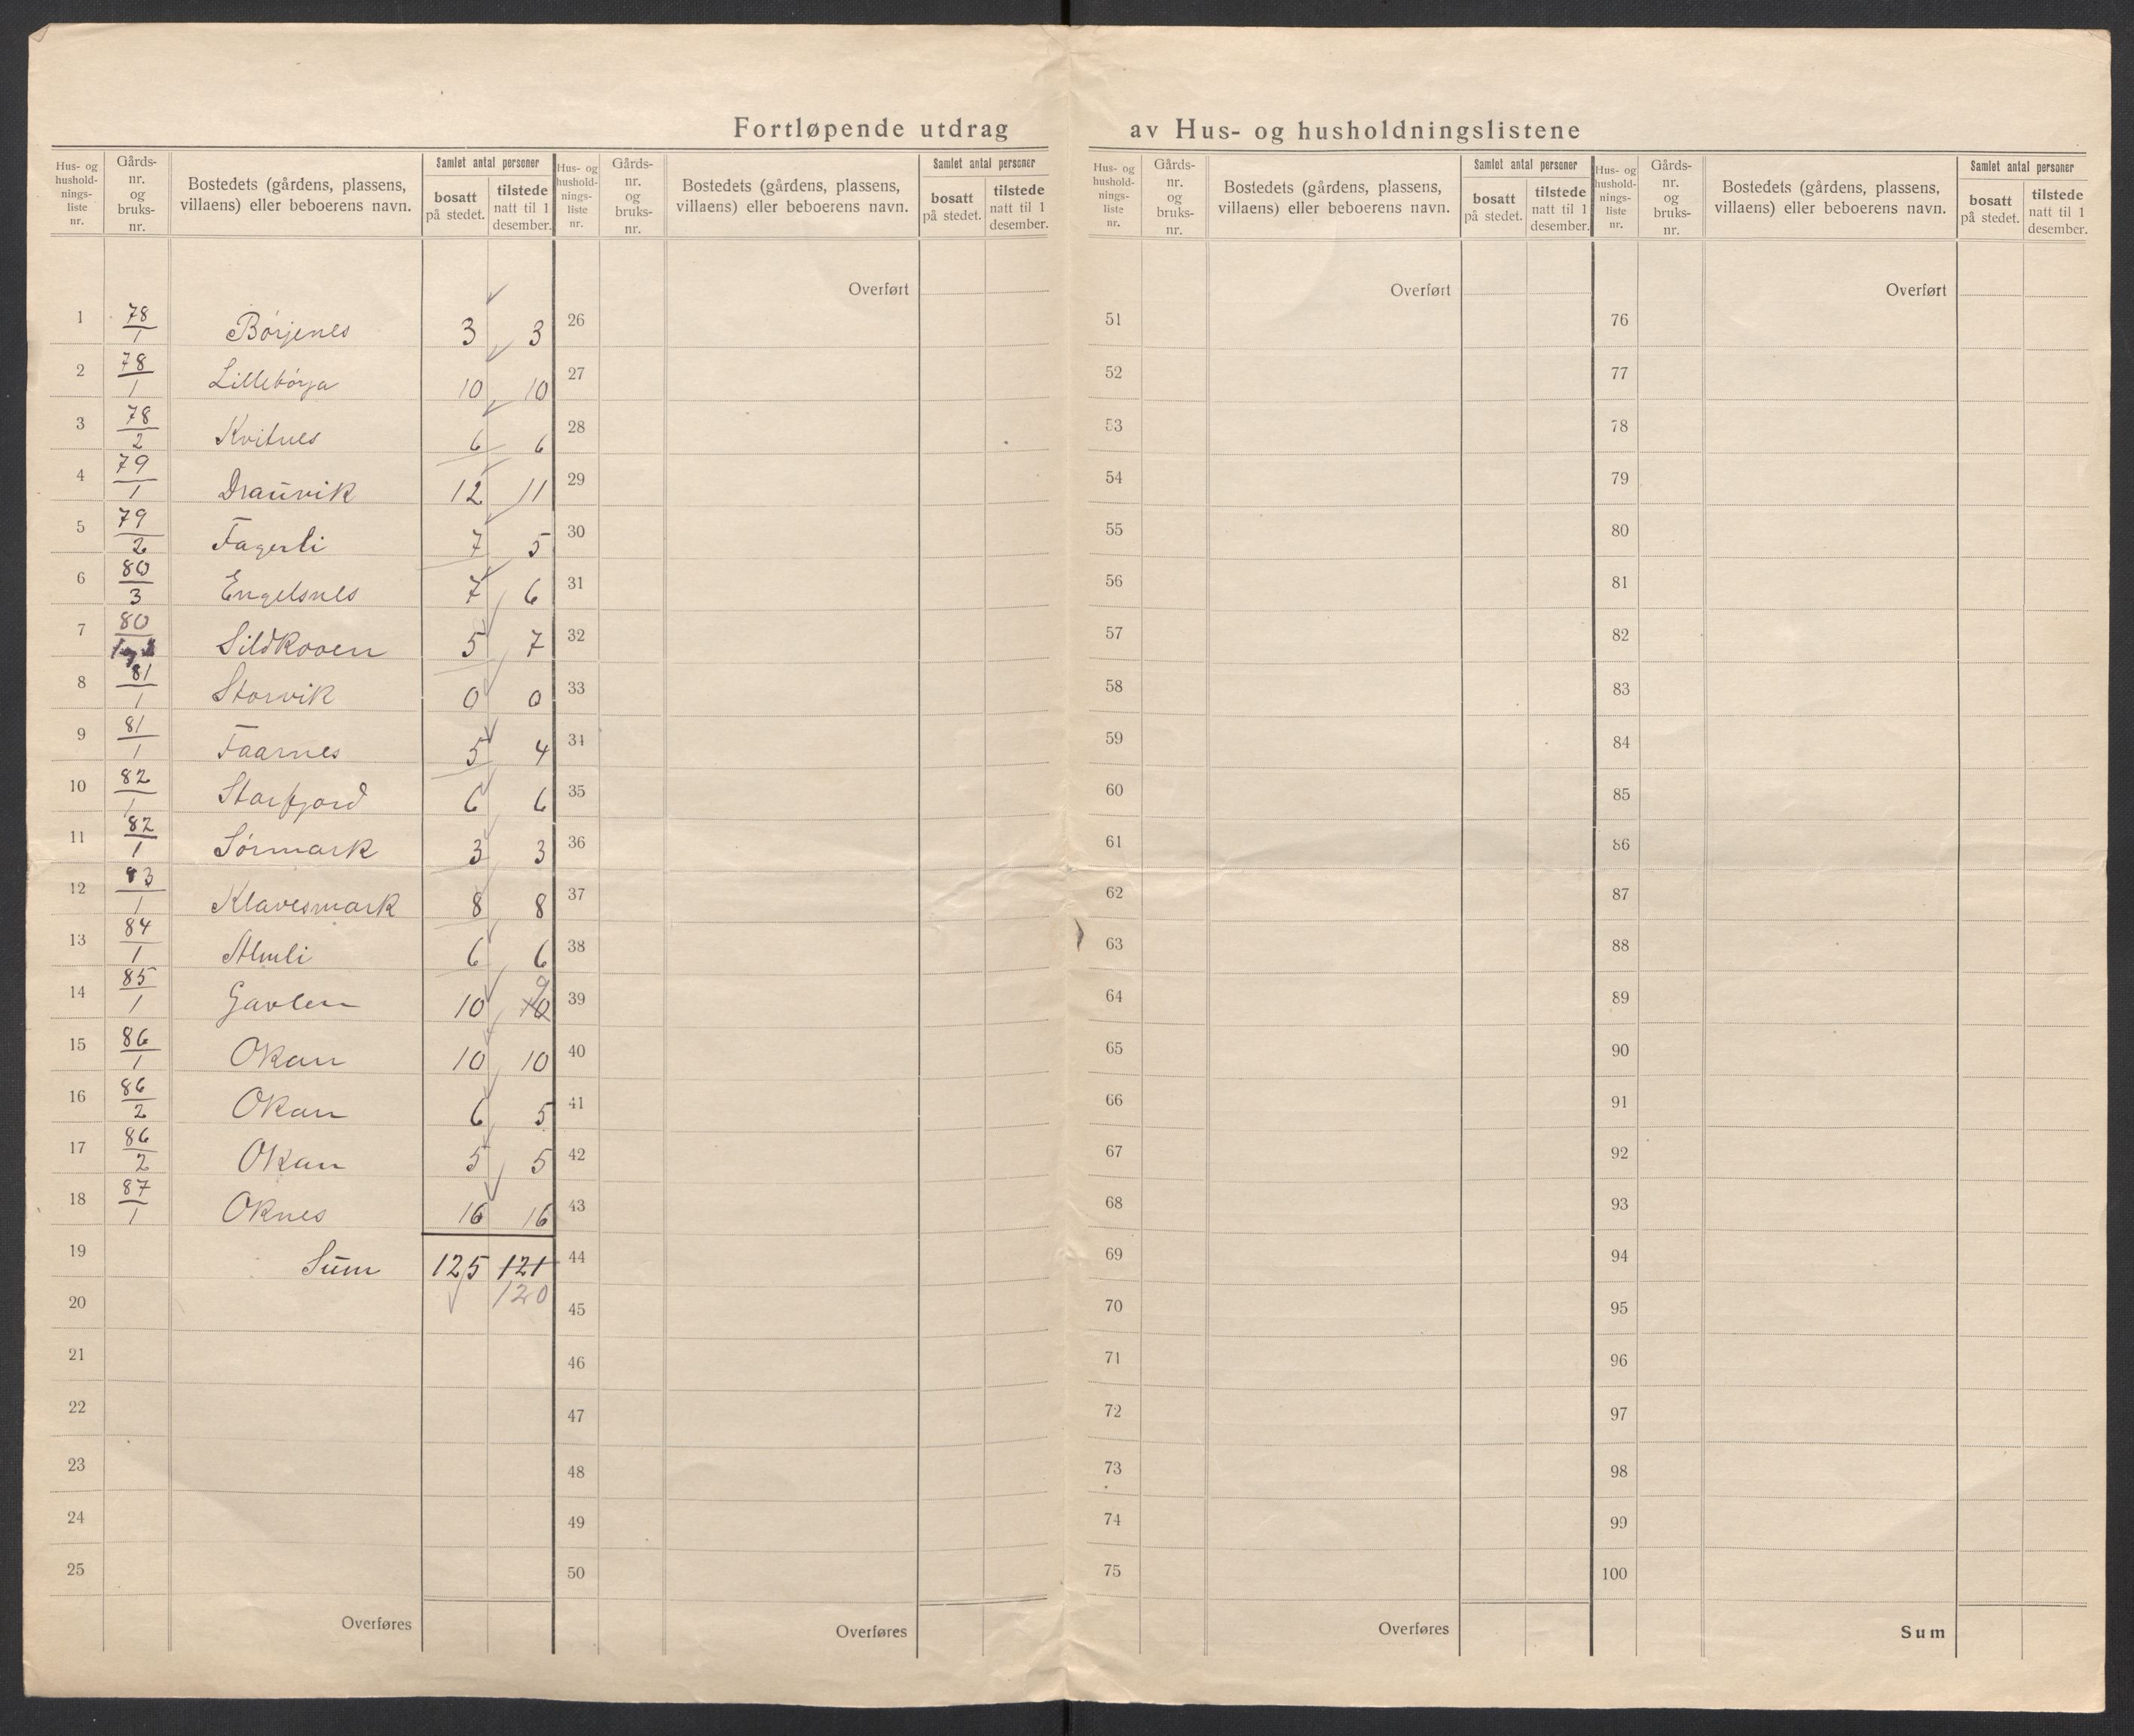 Fortløpende utdrag av Hus- og husholdningslistene
Hus- og hushold-nings-liste nr. | Gårds-nr. og bruks-nr. | Bostedets (gårdens, plassens, villaens) eller beboerens navn. | Samlet antal personer | bosatt på stedet. | tilstede natt til 1 desember.
1 78/1 Børjenes 3 3
2 78/1 Lillebørja 10 10
3 78/2 Kvitnes 6 6
4 79/1 Drauvik 12 11
5 79/2 Fagerli 7 5
6 80/3 Engelsnes 7 6
7 80 Sildkooen 5 7
8 81/1 Storvik 0 0
9 81/1 Faarnes 5 4
10 82/1 Storfjord 6 6
11 82/1 Sørmark 3 3
12 83/1 Klavesmark 8 8
13 84/1 Almli 6 6
14 85/1 Gavlen 10 10 9
15 86/1 Okan 10 10
16 86/2 Okan 6 5
17 86/2 Okan 5 5
18 87/1 Oknes 16 16
19 Sum 125 121
20 120
21
22
23
24
25
Overføres
Hus- og hushold-nings-liste nr. | Gårds-nr. og bruks-nr. | Bostedets (gårdens, plassens, villaens) eller beboerens navn. | Samlet antal personer | bosatt på stedet. | tilstede natt til 1 desember.
Overført
26
27
28
29
30
31
32
33
34
35
36
37
38
39
40
41
42
43
44
45
46
47
48
49
50
Overføres
Hus- og hushold-nings-liste nr. | Gårds-nr. og bruks-nr. | Bostedets (gårdens, plassens, villaens) eller beboerens navn. | Samlet antal personer | bosatt på stedet. | tilstede natt til 1 desember.
Overført
51
52
53
54
55
56
57
58
59
60
61
62
63
64
65
66
67
68
69
70
71
72
73
74
75
Overføres
Hus- og hushold-nings-liste nr. | Gårds-nr. og bruks-nr. | Bostedets (gårdens, plassens, villaens) eller beboerens navn. | Samlet antal personer | bosatt på stedet. | tilstede natt til 1 desember.
Overført
76
77
78
79
80
81
82
83
84
85
86
87
88
89
90
91
92
93
94
95
96
97
98
99
100
Sum